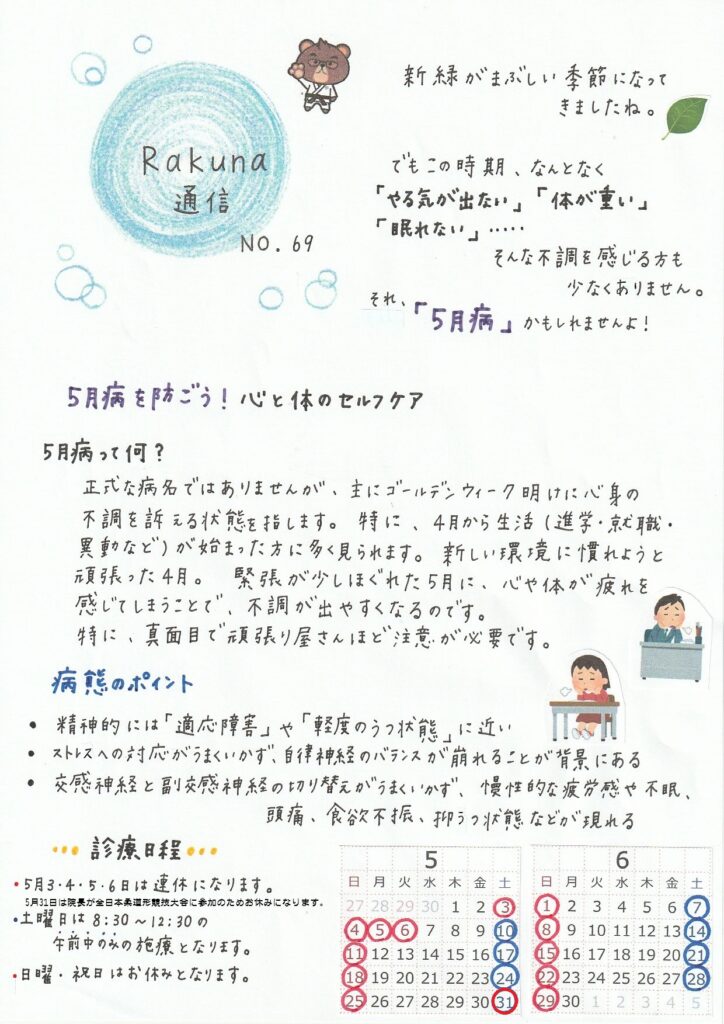 Rakuna
通信
NO.69
新緑がまぶしい季節になって
きましたね。
でもこの時期、なんとなく
「やる気が出ない」「体が重い」
「眠れない」・・・・・
そんな不調を感じる方も
少なくありません。
それ、「5月病」かもしれませんよ！
5月病を防ごう！心と体のセルフケア
5月病って何？
正式な病名ではありませんが、主にゴールデンウィーク明けに心身の
不調を訴える状態を指します。特に、4月から生活（進学・就職・
異動など）が始まった方に多く見られます。新しい環境に慣れようと
頑張った4月。緊張が少しほぐれた5月に、心や体が疲れを
感じてしまうことで、不調が出やすくなるのです。
特に、真面目で頑張り屋さんほど注意が必要です。
病態のポイント
• 精神的には「適応障害」や「軽度のうつ状態」に近い
• ストレスへの対応がうまくいかず、自律神経のバランスが崩れることが背景にある
• 交感神経と副交感神経の切り替えがうまくいかず、慢性的な疲労感や不眠、
頭痛、食欲不振、抑うつ状態などが現れる
•••診療日程•••
•5月3・4・5・6日は連休になります。
5月31日は院長が全日本柔道形競技大会に参加のためお休みになります。
•土曜日は8:30～12:30の
午前中のみの施療となります。
•日曜・祝日はお休みとなります。
5
日 月 火 水 木 金 土
27 28 29 30 1 2 3
4 5 6 7 8 9 10
11 12 13 14 15 16 17
18 19 20 21 22 23 24
25 26 27 28 29 30 31
6
日 月 火 水 木 金 土
1 2 3 4 5 6 7
8 9 10 11 12 13 14
15 16 17 18 19 20 21
22 23 24 25 26 27 28
29 30 1 2 3 4 5